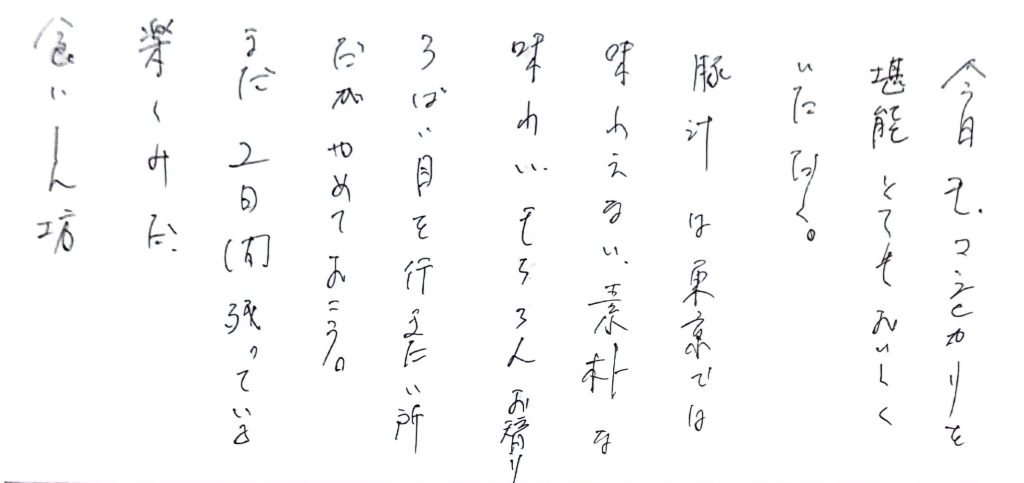 今日も、コシヒカリを
堪能とてもおいしく
いただく。
豚汁は東京では
味わえない、素朴な
味わい、もちろんお替り
3ばい目を行きたい所
だがやめておこう。
まだ2日間残っている
楽しみだ、
食いしん坊